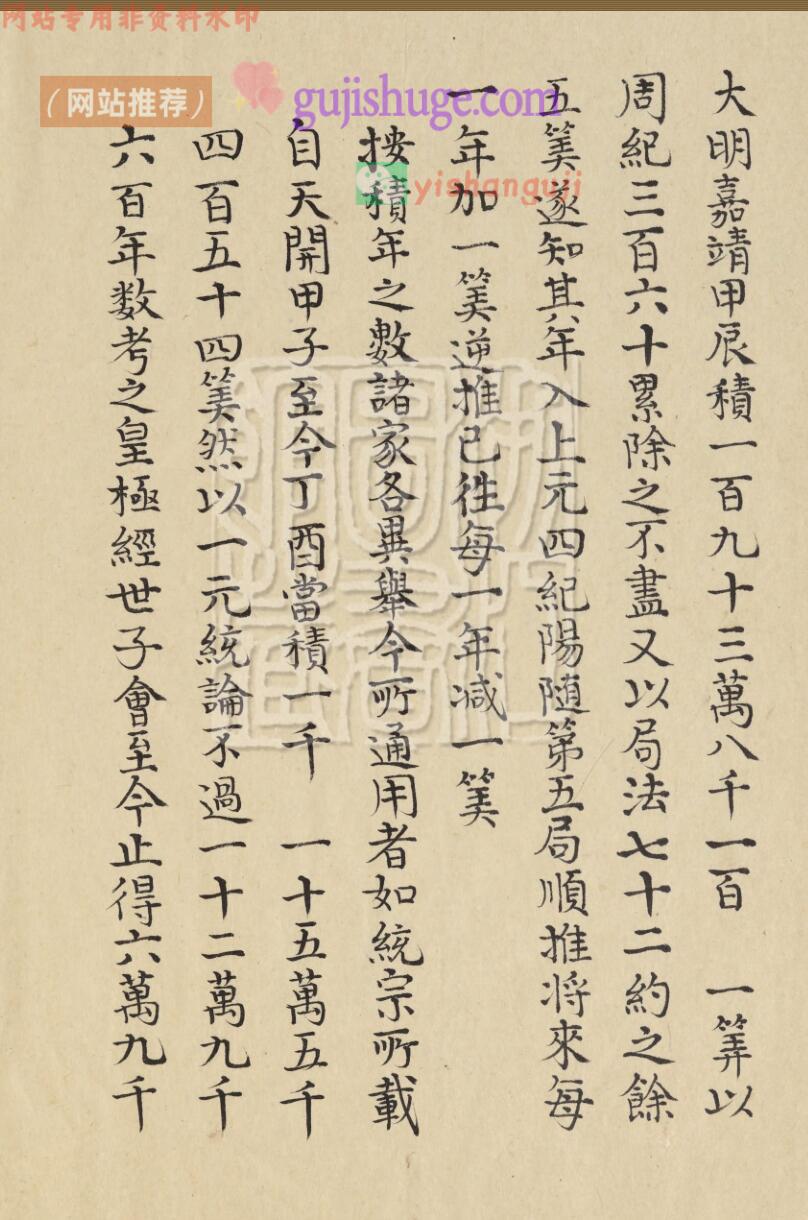 网站专用非资料水印
（网站推荐）
gujishuge.com
yishanguji
大明嘉靖甲辰積一百九十三萬八千一百 一筭以
周紀三百六十累除之不盡又以局法七十二約之餘
五筭遂知其年入上元四紀陽随第五局順推将來每
一年加一筭逆推已徃每一年减一筭
按積年之數諸家各異舉今所通用者如統宗所載
自天開甲子至今丁酉當積一千 一十五萬五千
四百五十四筭然以一元統論不過一十二萬九千
六百年数考之皇極經世子會至今止得六萬九千